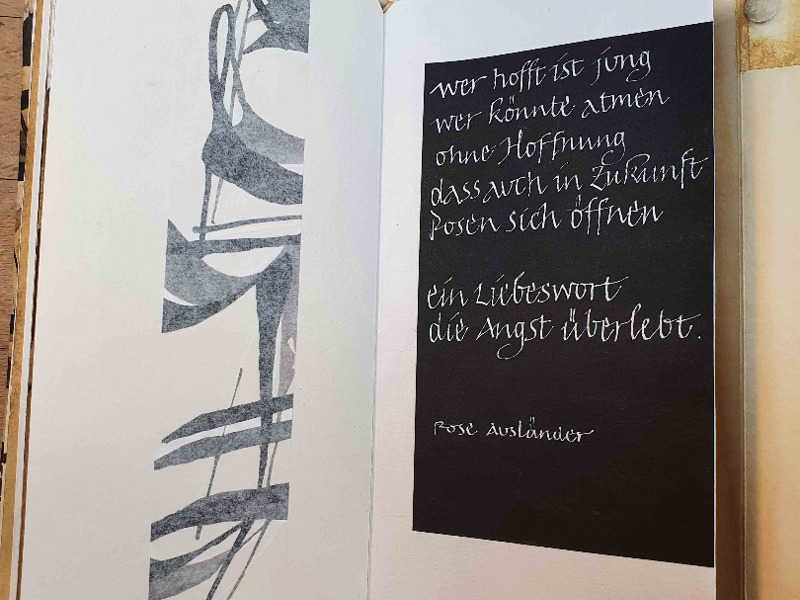 wer hofft ist jung
wer könnte atmen
ohne Hoffnung
dass auch in Zukunft
Rosen sich öffnen
ein Liebeswort
die Angst überlebt.
Rose Ausländer